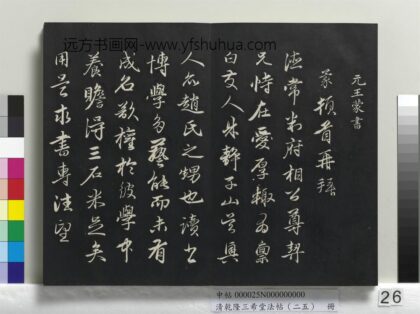 遠方书画网-www.yfshuhua.com
元王蒙書
蒙頓首再拜
德常判府相公尊契
兄恃在愛厚輙為稟
白友人朱
人亦趙氏之甥也讀書
博學多藝能而未有
成名欲權於彼學中
養贍得三石米足矣
用是求書專注望
中帖 000025N000000000
清乾隆三希堂法帖(二五) 冊
26